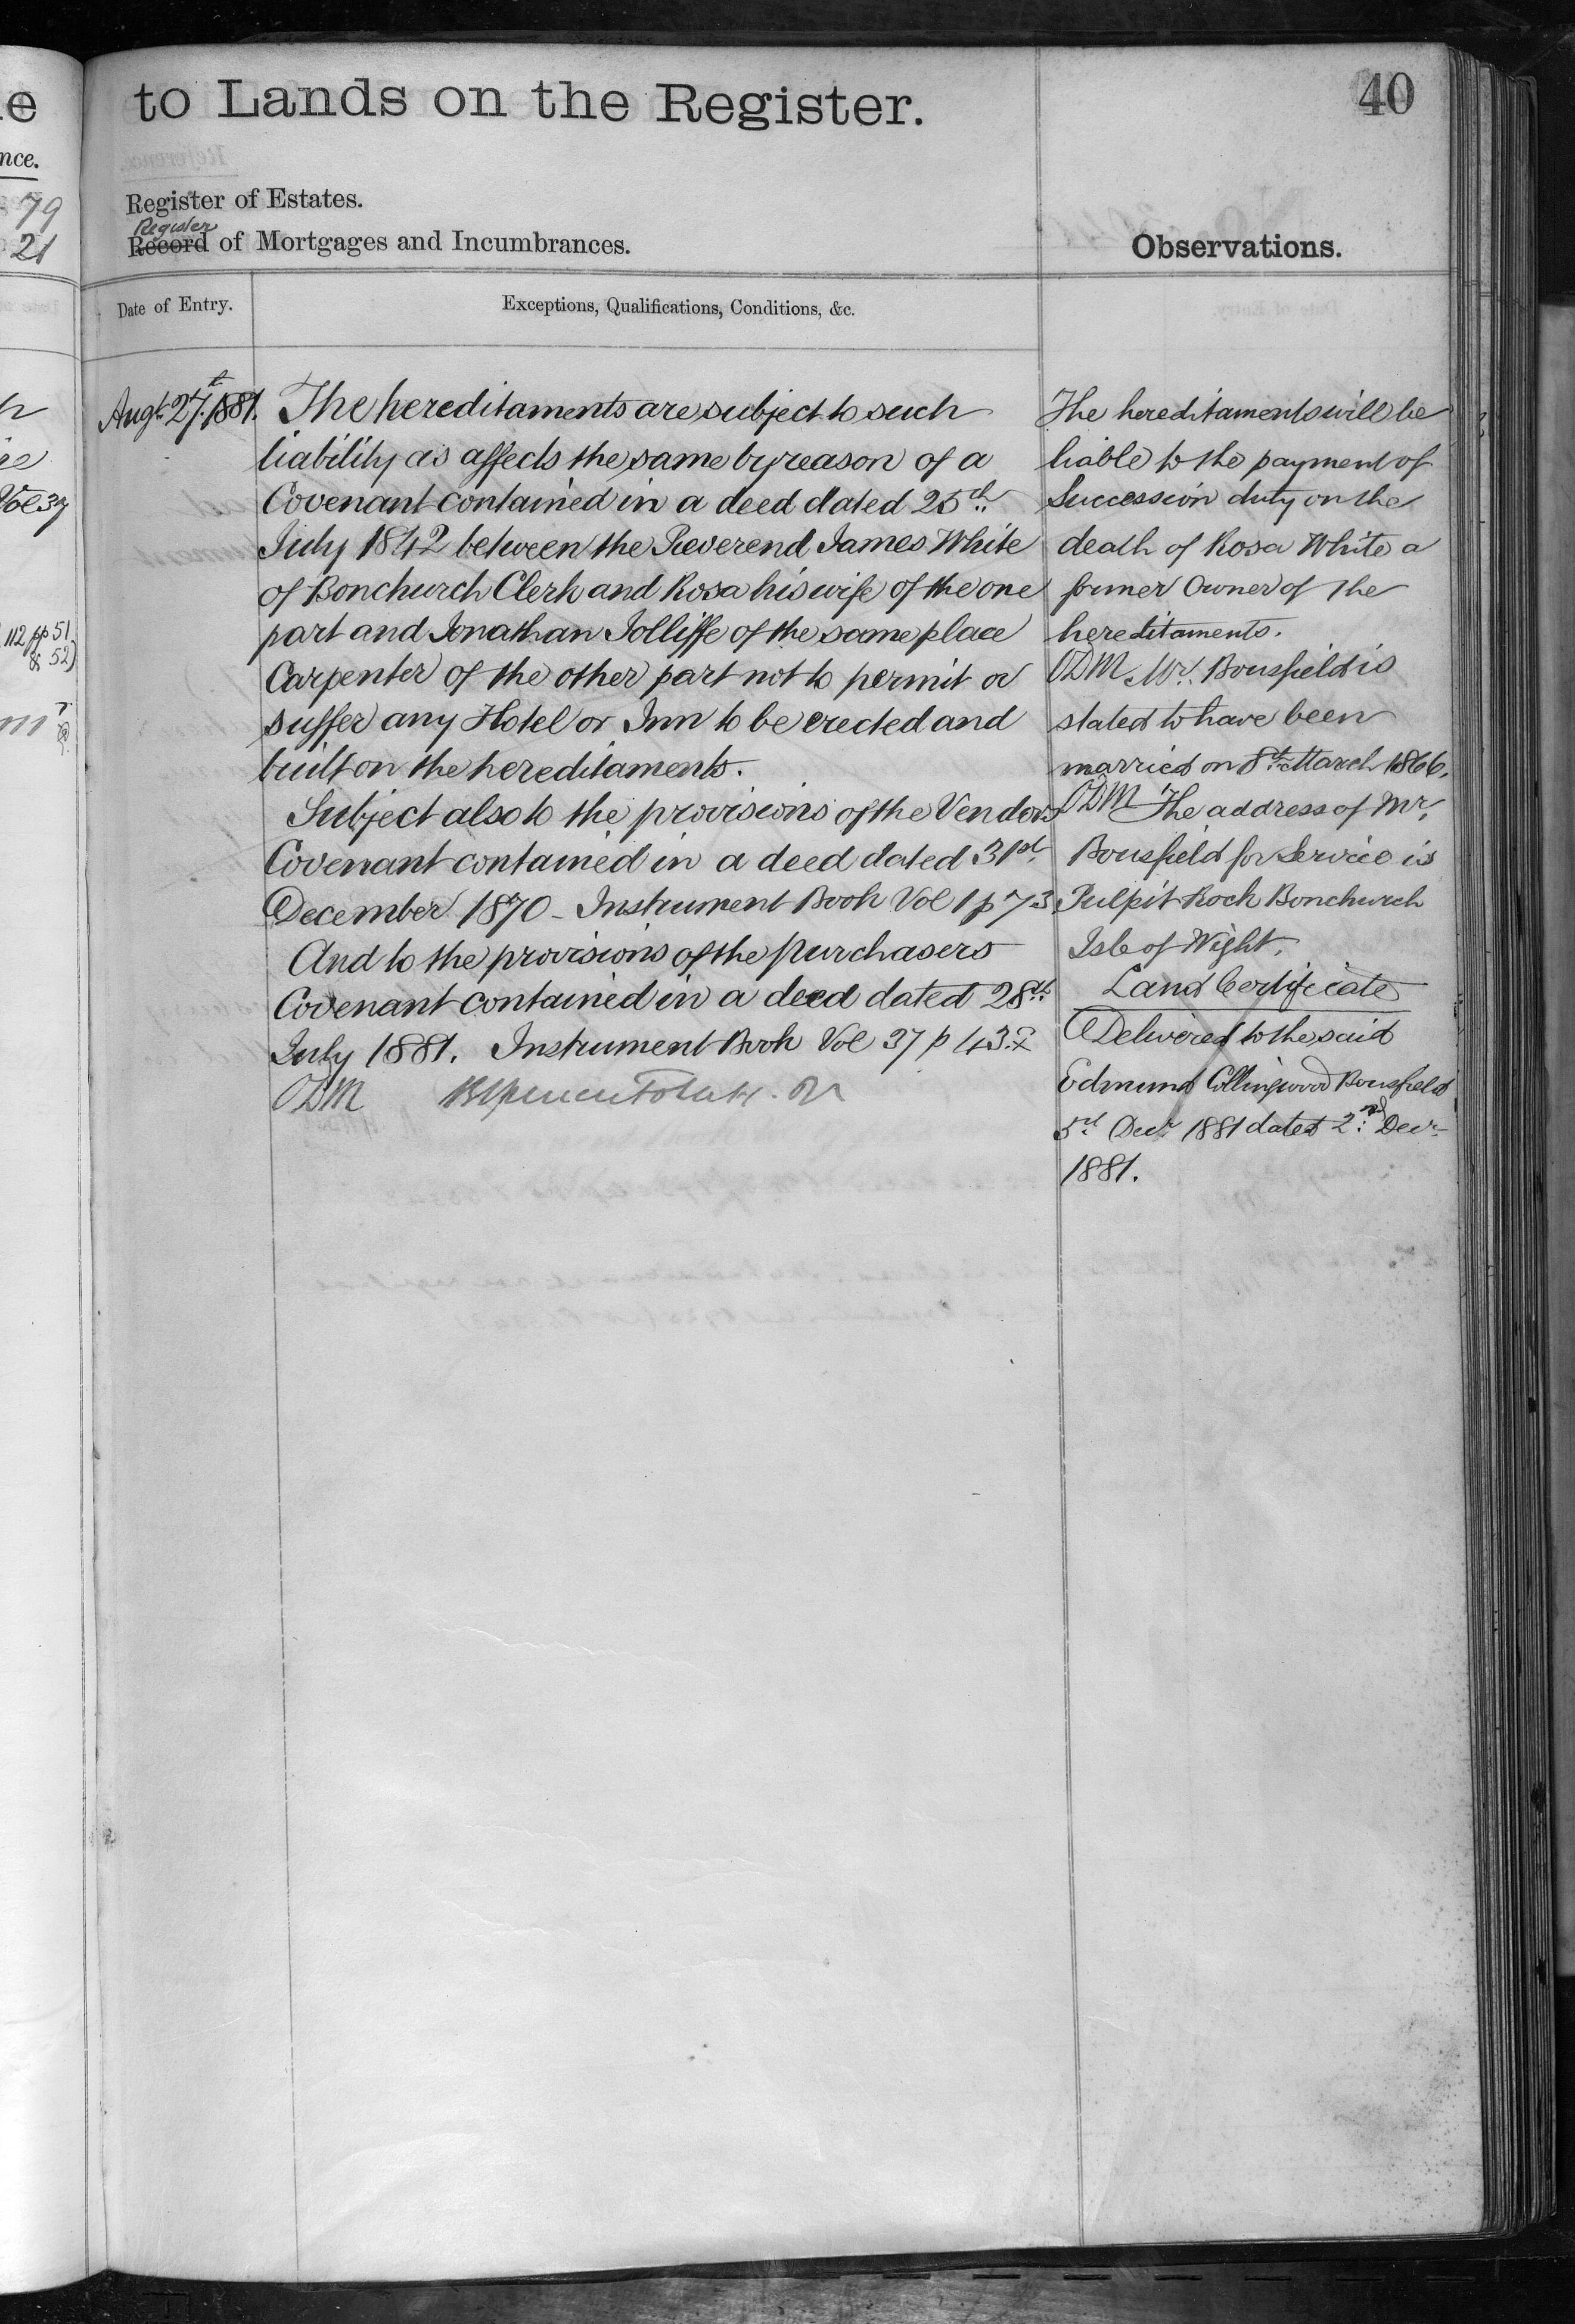 to Lands on the Register.
40
Register of Estates.
Register
Record of Mortgages and Incumbrances.
Observations.
Date of Entry.
Exceptions, Qualifications, Conditions, &c.
Augt. 27th. 1881.
The hereditaments are subject to such
liability as affects the same by reason of a
Covenant contained in a deed dated 25th
July 1842 between the Reverend James White
of Bonchurch Clerk and Rosa his wife of the one
part and Jonathan Jolliffe of the same place
Carpenter of the other part not to permit or
suffer any Hotel or Inn to be erected and
built on the hereditaments.
Subject also to the provisions of the Vendors
Covenant contained in a deed dated 31st.
December 1870 - Instrument Book Vol 1 p 73.
And to the provisions of the purchasers
Covenant contained in a deed dated 28th
July 1881. Instrument Book Vol 37 p 43.
ODM
The hereditaments will be
liable to the payment of
Succession duty on the
death of Rosa White a
former Owner of the
hereditaments.
ODM Mr. Bousfield is
stated to have been
married on 8th March 1866.
ODM The address of Mr.
Bousfield for Service is
Pulpit Rock Bonchurch
Isle of Wight.
Land Certificate
Delivered to the said
Edmund Collingwood Bousfield
3rd Decr 1881 dated 2nd Decr
1881.
e
nce.
79
21
Vol 37
112 pp 51
& 52)